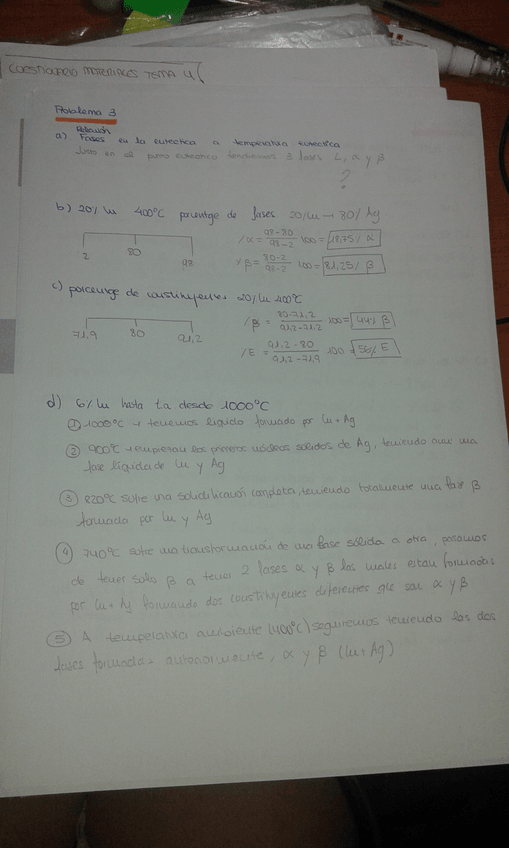 CUESTIONARIO MATERIALES TEMA 4
Problema 3
Relación
a) Fases en la eutectica a temperatura eutectica
Justo en el punto eutectico tendremos 3 fases L, α y β
?
b) 20% Cu 400°C porcentge de fases 20% Cu → 80% Ag
2 80 98
% α = 98-80 / 98-2 · 100 = 18,75% α
% β = 80-2 / 98-2 100 = 81,25% β
c) porcentge de constituyentes 20% Cu 400°C
71,9 80 91,2
% β = 80-71,2 / 91,2-71,2 100 = 44% β
% E = 91,2-80 / 91,2-71,9 100 = 56% E
d) 6% Cu hasta ta desde 1000°C
① 1000°C → tenemos líquido formado por Cu + Ag
② 900°C → empiezan los primeros núcleos solidos de Ag, teniendo aun una
fase líquida de Cu y Ag
③ 820°C sufre una solidificación completa, teniendo totalmente una fase β
formada por Cu y Ag
④ 740°C sufre una transformación de una fase sólida a otra, pasamos
de tener solo β a tener 2 fases α y β las cuales estan formadas
por Cu + Ag formando dos constituyentes diferentes que son α y β
⑤ A temperatura ambiente (400°C) seguiremos teniendo las dos
fases formadas anteriormente, α y β (Cu + Ag)